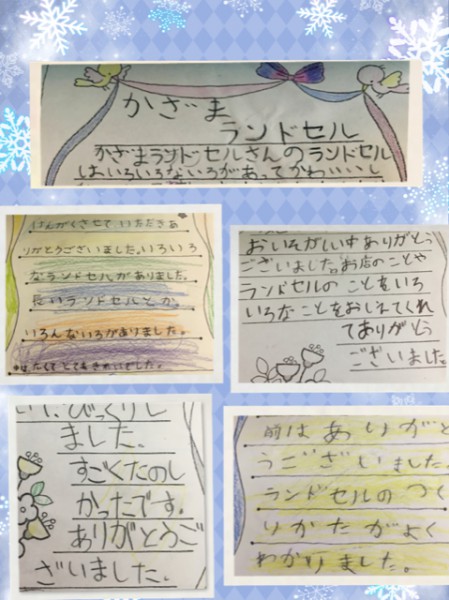 かざま
ランドセル
かざまランドセルさんのランドセル
はいろいろないろがあってかわいいし
けんがくさせていただきあ
りがとうございました。いろいろ
なランドセルがありました。
長いランドセルとか、
いろんないろがありました。
とてもきれいでした。
おいそがしい中ありがとう
ございました。お店のことや
ランドセルのことをいろ
いろなことをおしえてくれ
てありがとう
ございました
びっくりし
ました。
すごくたのし
かったです。
ありがとうご
ざいました。
前はありがと
うございました。
ランドセルのつく
りかたがよく
わかりました。